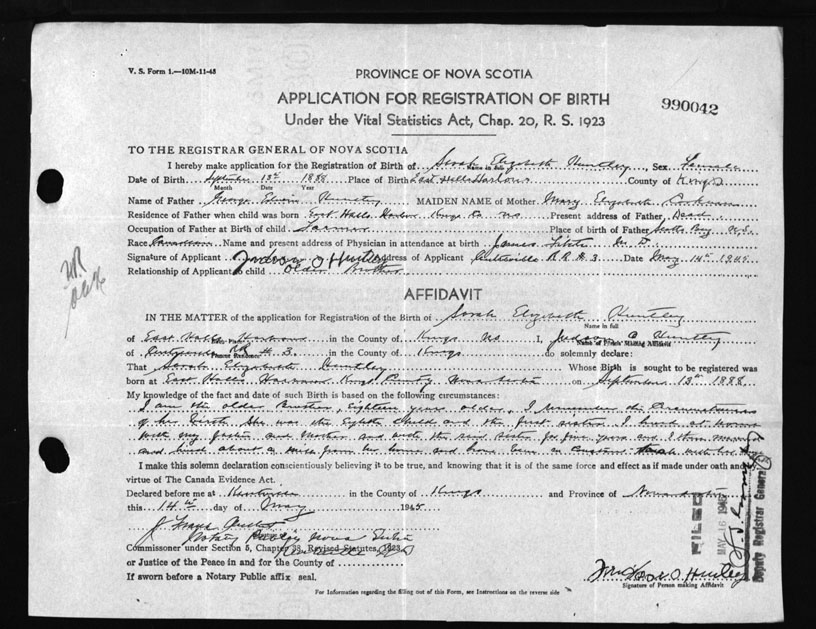 V. S. Form 1.—10M-11-43
PROVINCE OF NOVA SCOTIA
APPLICATION FOR REGISTRATION OF BIRTH
990042
Under the Vital Statistics Act, Chap. 20, R. S. 1923
TO THE REGISTRAR GENERAL OF NOVA SCOTIA
I hereby make application for the Registration of Birth of Sarah Elizabeth Huntley, Sex Female
Name in full
Date of Birth September 13th 1888 Place of Birth East Halls Harbour County of Kings
Month Date Year
Name of Father George Edwin Huntley MAIDEN NAME of Mother Mary Elizabeth
Residence of Father when child was born East Halls Harbour Kings Co NS Present address of Father Dead
Occupation of Father at Birth of child Farmer Place of birth of Father Scotts Bay N.S.
Race Canadian Name and present address of Physician in attendance at birth James M. D.
Signature of Applicant Judson O Huntley Address of Applicant Centreville R.R. # 3 Date May 14th 1945
Relationship of Applicant to child Older Brother
AFFIDAVIT
IN THE MATTER of the application for Registration of the Birth of Sarah Elizabeth Huntley
Name in full
of East Halls Harbour in the County of Kings NS I, Judson O Huntley
Name of Person Making Affidavit
of Centreville RR # 3 in the County of Kings do solemnly declare:
Present Residence
That Sarah Elizabeth Huntley Whose Birth is sought to be registered was
born at East Halls Harbour Kings County Nova Scotia on September 13th 1888
My knowledge of the fact and date of such Birth is based on the following circumstances:
I am the older Brother, Eighteen years older, I remember the Circumstances
of her Birth. She was the Eighth Child and the first I lived at home
with my father and mother and with the said sister for five years and I then
and lived about a mile from her home and have been in Constant touch with her
I make this solemn declaration conscientiously believing it to be true, and knowing that it is of the same force and effect as if made under oath and
virtue of The Canada Evidence Act.
Declared before me at Kentville in the County of Kings and Province of Nova Scotia
this 14th day of May 1945
Notary Public Nova Scotia
Commissioner under Section 5, Chapter 38, Revised Statutes, 1923
Kentville NS
or Justice of the Peace in and for the County of
If sworn before a Notary Public affix seal.
Judson O Huntley
Signature of Person making Affidavit
For Information regarding the filling out of this Form, see Instructions on the reverse side
FILED
MAY 16 1945
Deputy Registrar General